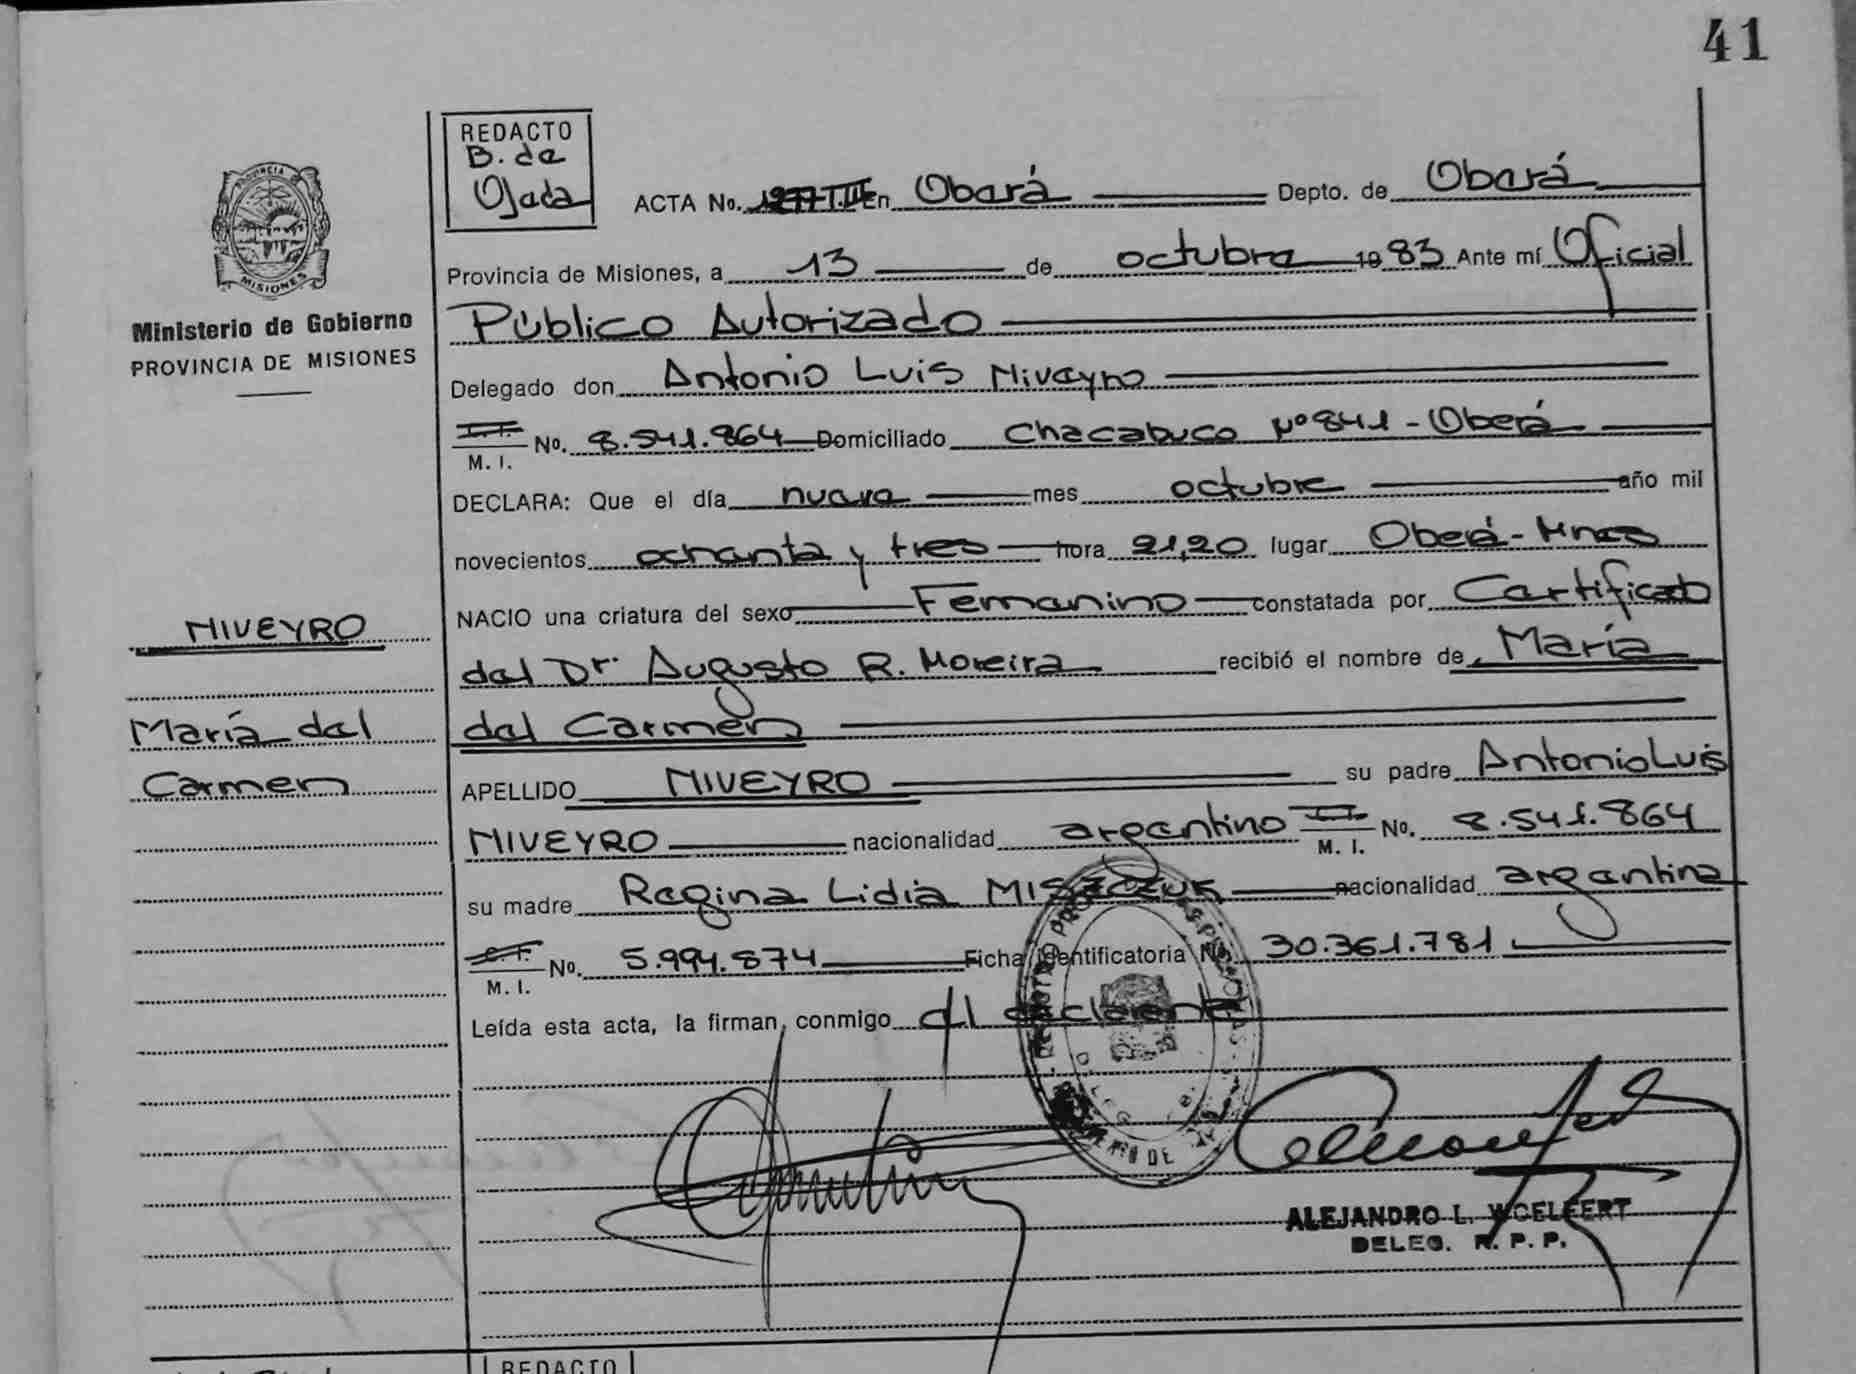 41
REDACTO
B. de
Ojeda
ACTA No. 1277 T.III En Oberá Depto. de Oberá
Provincia de Misiones, a 13 de octubre 1983 Ante mí Oficial
Público Autorizado
Delegado don Antonio Luis Miveyro
PROVINCIA DE
MISIONES
Ministerio de Gobierno
PROVINCIA DE MISIONES
M. I. No. 8.541.864 Domiciliado Chacabuco Nº 841 - Oberá
DECLARA: Que el día nueve mes octubre año mil
novecientos ochenta y tres hora 21,20 lugar Oberá - Mnes
NACIO una criatura del sexo Femenino constatada por Certificado
del Dr. Augusto R. Moreira recibió el nombre de María
del Carmen
MIVEYRO
María del
Carmen
APELLIDO MIVEYRO su padre Antonio Luis
MIVEYRO nacionalidad argentino M. I. No. 8.541.864
su madre Regina Lidia MISZCZUK nacionalidad argentina
M. I. No. 5.994.874 Ficha Identificatoria No. 30.361.781
Leída esta acta, la firman, conmigo el declarante
ALEJANDRO L. WOELFERT
DELEG. R. P. P.
REDACTO